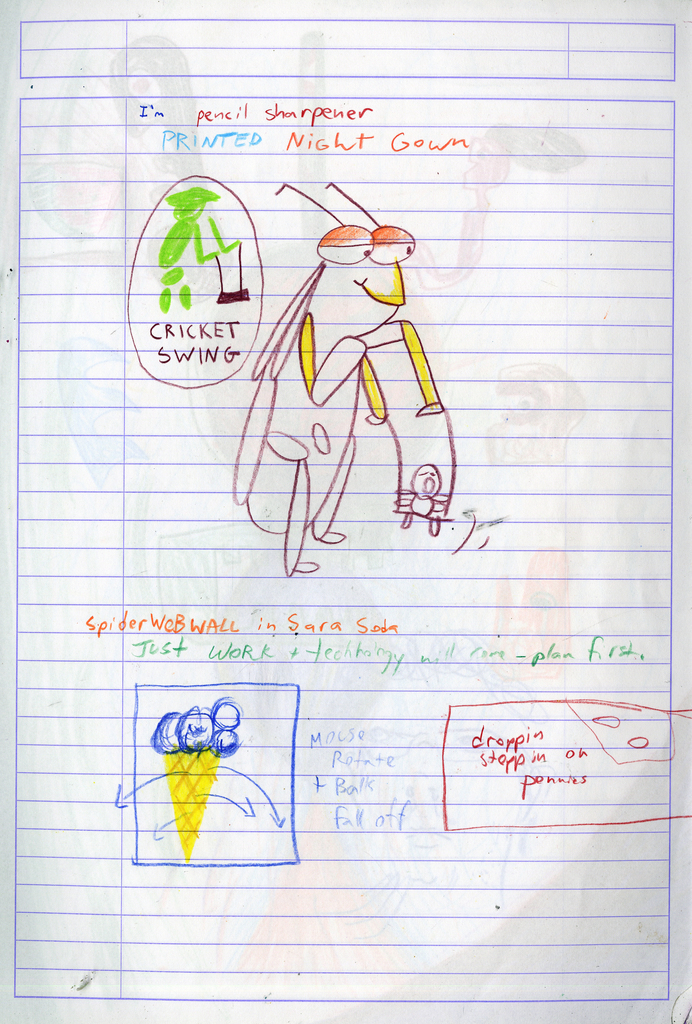 I'm pencil sharpener
PRINTED Night Gown
CRICKET
SWING
spiderWeBWALL in Sara Soda
Just WORK + will - plan first.
Mouse
Rotate
+ Balls
fall off
droppin
steppin on
pennies